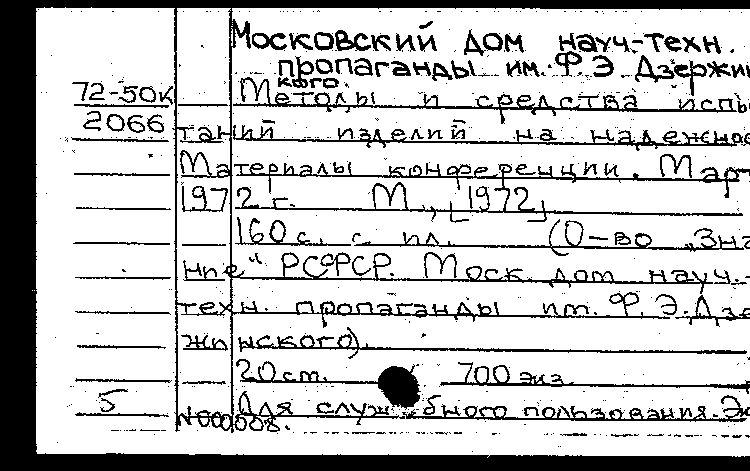 Московский дом науч.-техн.
пропаганды им. Ф. Э. Дзержин
ского.
72-50к Методы и средства испы
2066 таний изделий на надежнос
Материалы конференции. Март
1972 г. М., [1972]
160 с. с ил. (О-во „Зна
ние" РСФСР. Моск. дом науч.-
техн. пропаганды им. Ф. Э. Дзе
жинского).
20 см. 700 экз.
5 Для служебного пользования. Эк
№000008.